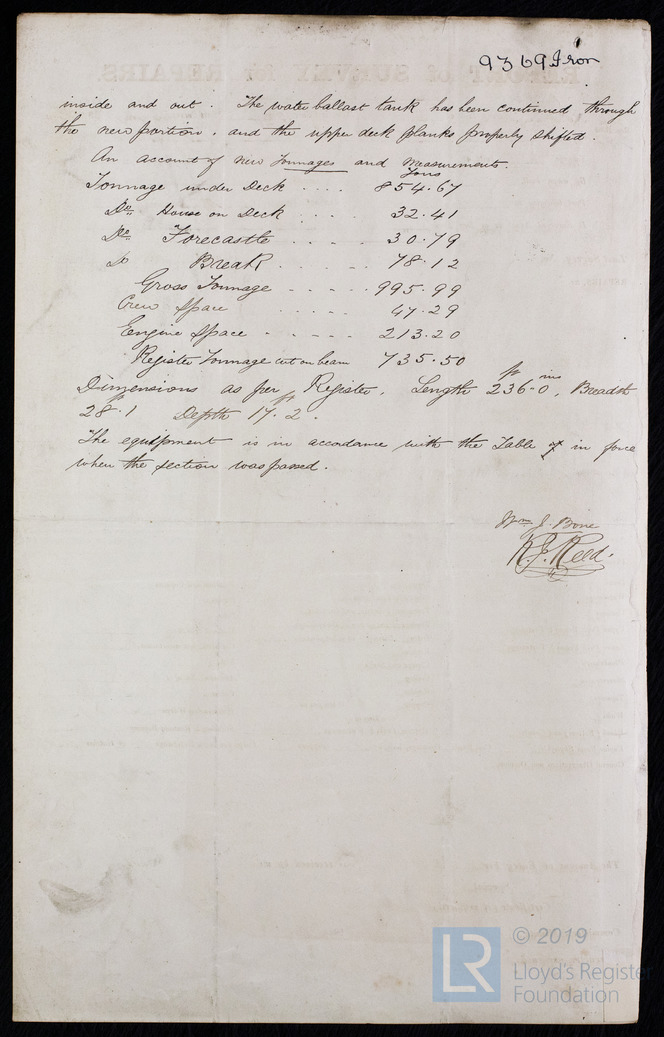 9369 Iron
inside and out. The water ballast tank has been continued through
the new portion, and the upper deck planks properly shifted.
An account of new Tonnages and Measurements.
Tons
Tonnage under Deck .... 854.67
Do House on Deck .... 32.41
Do Forecastle ..... 30.79
Do Break ..... 78.12
Gross Tonnage ..... 995.99
Crew Space ..... 47.29
Engine Space ..... 213.20
Register Tonnage cut on beam 735.50
Dimensions as per Register. Length 236 ft 0 ins, Breadth
28.1 Depth 17.2.
The equipment is in accordance with the Table in force
when the section was passed.
Wm J. Bone
R.J. Reed.
LR © 2019
Lloyd's Register
Foundation